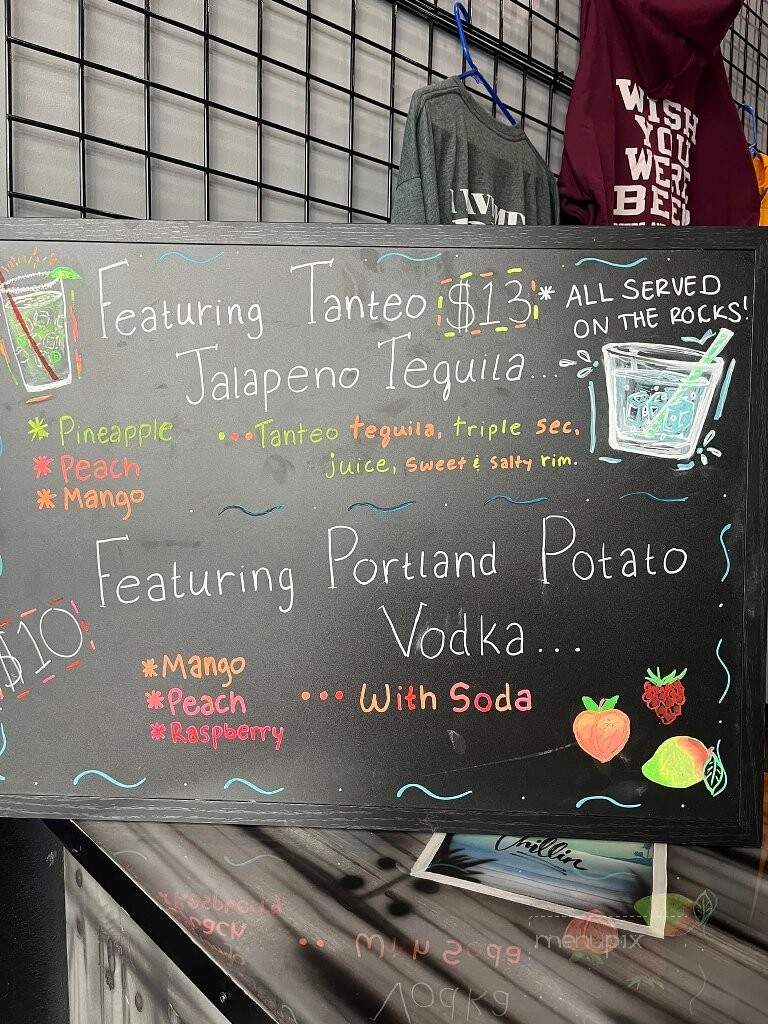 WISH
YOU
WERE
BEER
Featuring Tanteo $13 * ALL SERVED
ON THE ROCKS!
Jalapeno Tequila...
* Pineapple
* Peach
* Mango
...Tanteo tequila, triple sec,
juice, sweet & salty rim.
Featuring Portland Potato
Vodka...
$10
* Mango
* Peach
* Raspberry
... With Soda
Chillin
menupix